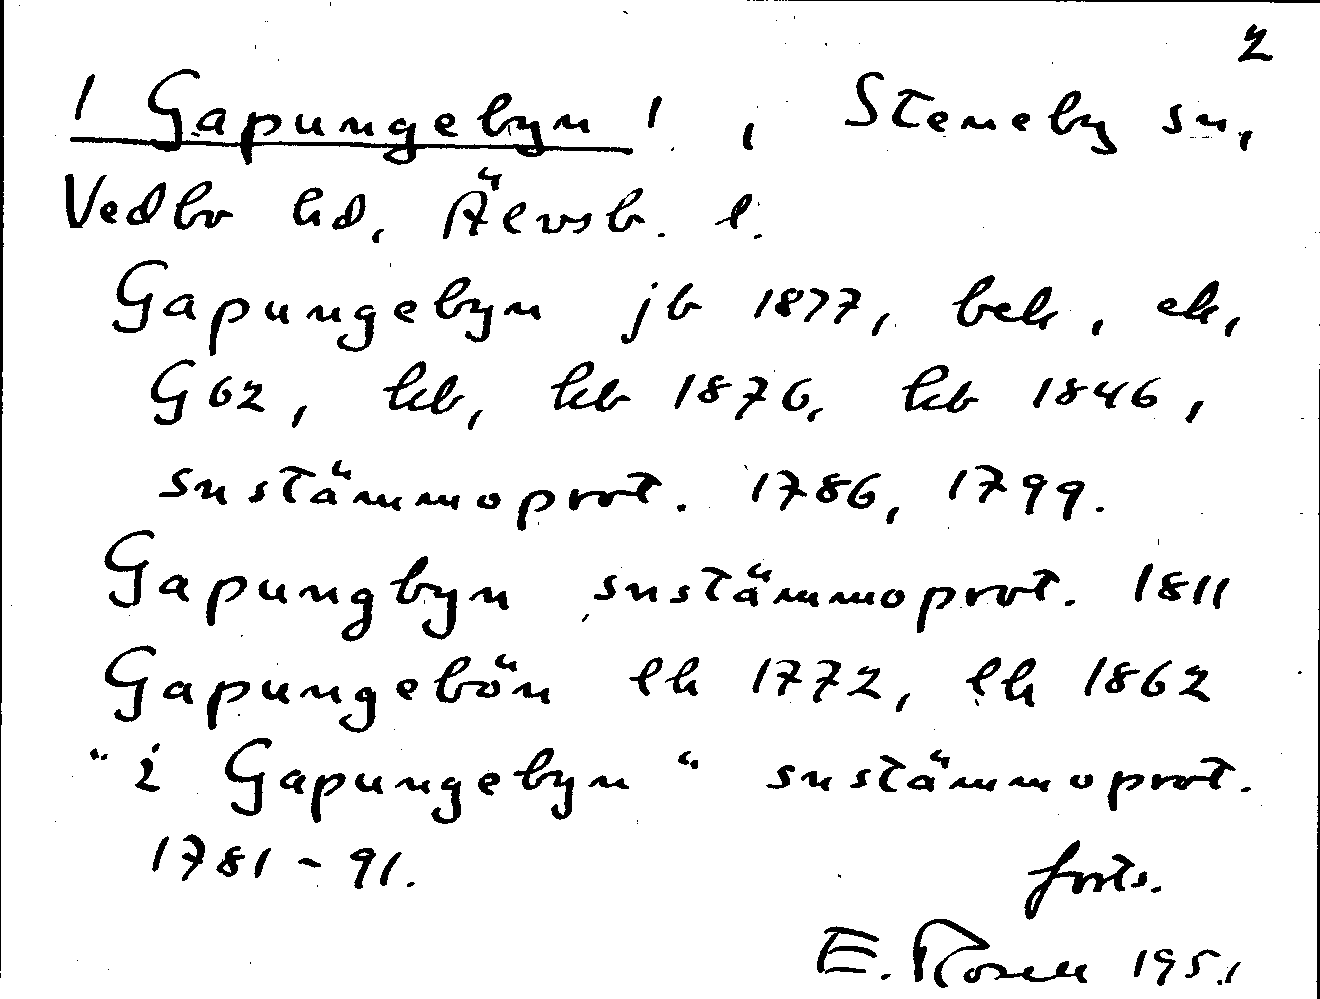 2
/ Gapungebyn /, Steneby sn,
Vedbo hd, Älvsb. l.
Gapungebyn jb 1877, bek, ek,
G62, kb, kb 1876, kb 1846,
snstämmoprot. 1786, 1799.
Gapungbyn snstämmoprot. 1811
Gapungebön lh 1772, lh 1862
"i Gapungebyn" snstämmoprot.
1781-91.
forts.
E. Rosell 1951